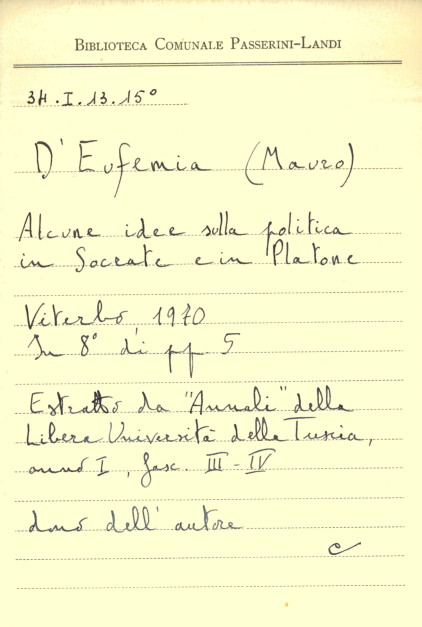 BIBLIOTECA COMUNALE PASSERINI-LANDI
3H.I.13.15°
D'Eufemia (Mauro)
Alcune idee sulla politica
in Socrate e in Platone
Viterbo, 1970
In 8° di pp 5
Estratto da "Annali" della
Libera Università della Tuscia,
anno I, fasc. III-IV
dono dell'autore
c